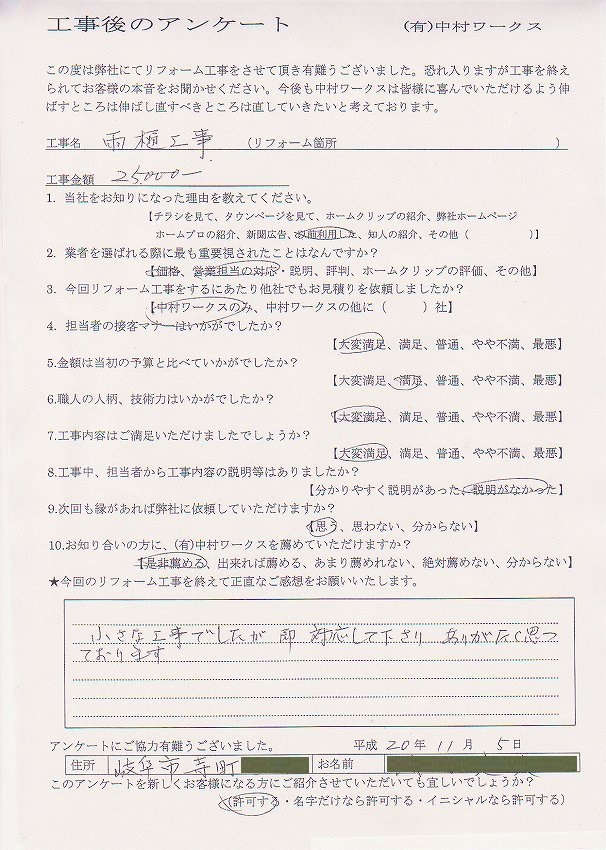 工事後のアンケート　(有)中村ワークス
この度は弊社にてリフォーム工事をさせて頂き有難うございました。恐れ入りますが工事を終え
られてお客様の本音をお聞かせください。今後も中村ワークスは皆様に喜んでいただけるよう伸
ばすところは伸ばし直すべきところは直していきたいと考えております。
工事名　雨樋工事　（リフォーム箇所　　　）
工事金額　25000-
1. 当社をお知りになった理由を教えてください。
【チラシを見て、タウンページを見て、ホームクリップの紹介、弊社ホームページ
ホームプロの紹介、新聞広告、以前利用した、知人の紹介、その他（　　　）】
2. 業者を選ばれる際に最も重要視されたことはなんですか？
【価格、営業担当の対応・説明、評判、ホームクリップの評価、その他】
3. 今回リフォーム工事をするにあたり他社でもお見積りを依頼しましたか？
【中村ワークスのみ、中村ワークスの他に（　　　）社】
4. 担当者の接客マナーはいかがでしたか？
【大変満足、満足、普通、やや不満、最悪】
5.金額は当初の予算と比べていかがでしたか？
【大変満足、満足、普通、やや不満、最悪】
6.職人の人柄、技術力はいかがでしたか？
【大変満足、満足、普通、やや不満、最悪】
7.工事内容はご満足いただけましたでしょうか？
【大変満足、満足、普通、やや不満、最悪】
8.工事中、担当者から工事内容の説明等はありましたか？
【分かりやすく説明があった、説明がなかった】
9.次回も縁があれば弊社に依頼していただけますか？
【思う、思わない、分からない】
10.お知り合いの方に、(有)中村ワークスを薦めていただけますか？
【是非薦める、出来れば薦める、あまり薦めれない、絶対薦めない、分からない】
★今回のリフォーム工事を終えて正直なご感想をお願いいたします。
小さな工事でしたが 即 対応して下さり ありがたく思っ
ております
アンケートにご協力有難うございました。　平成 20 年 11 月 5 日
住所　岐阜市寿町　お名前
このアンケートを新しくお客様になる方にご紹介させていただいても宜しいでしょうか？
（許可する・名字だけなら許可する・イニシャルなら許可する）